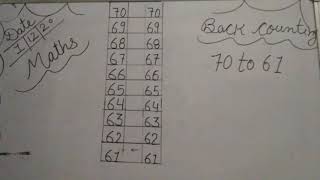 Date
1/12/20
Maths
70 70
69 69
68 68
67 67
66 66
65 65
64 64
63 63
62 62
61 61
Back Counting
70 to 61